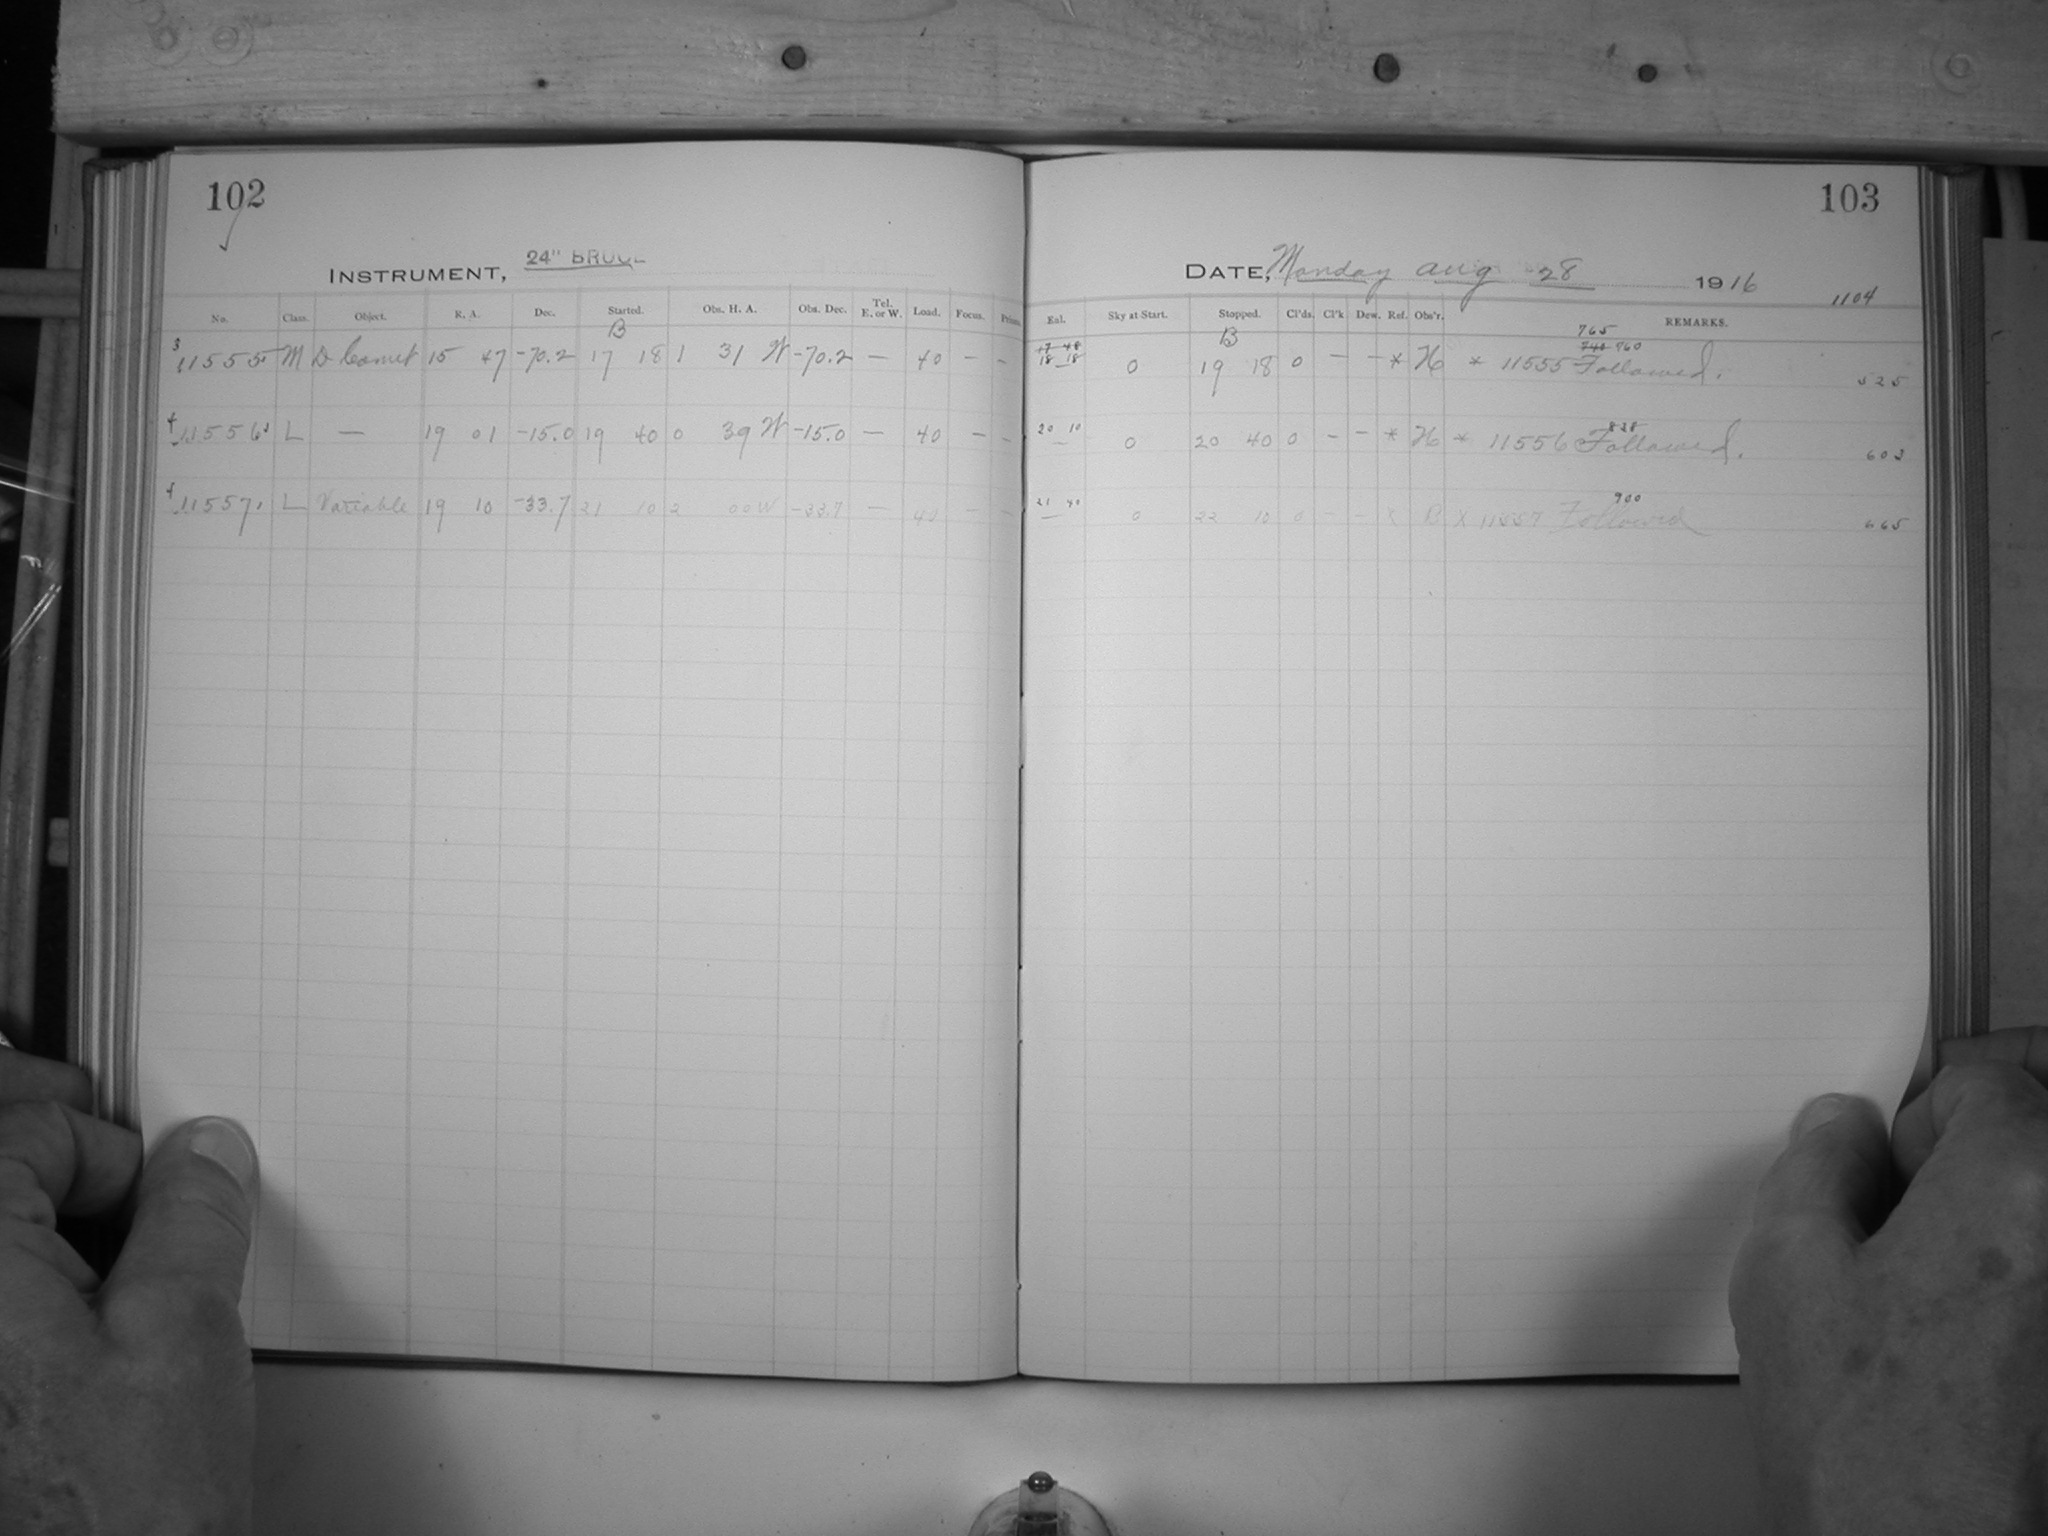 102
103
24" BRUCE
INSTRUMENT,
DATE, Monday Aug 28 1916
1104
No. Class. Object. R. A. Dec. Started. Obs. H. A. Obs. Dec. Tel. E. or W. Load. Focus. Prism.
Eal. Sky at Start. Stopped. Cl'ds. Cl'k Dew. Ref. Obs'r. REMARKS.
B
B
765
17 48
740 760
3 11555 M D Comet 15 47 -70.2 17 18 1 31 W -70.2 — 40 — —
18 18 0 19 18 0 — — * H * 11555 Followed. 525
4 11556 L — 19 01 -15.0 19 40 0 39 W -15.0 — 40 — —
828
20 10 — 0 20 40 0 — — * H * 11556 Followed. 602
4 11557 L Variable 19 10 -33.7 21 10 2 00 W -33.7 — 40 — —
900
21 40 — 0 22 10 0 — — x B X 11557 Followed 665